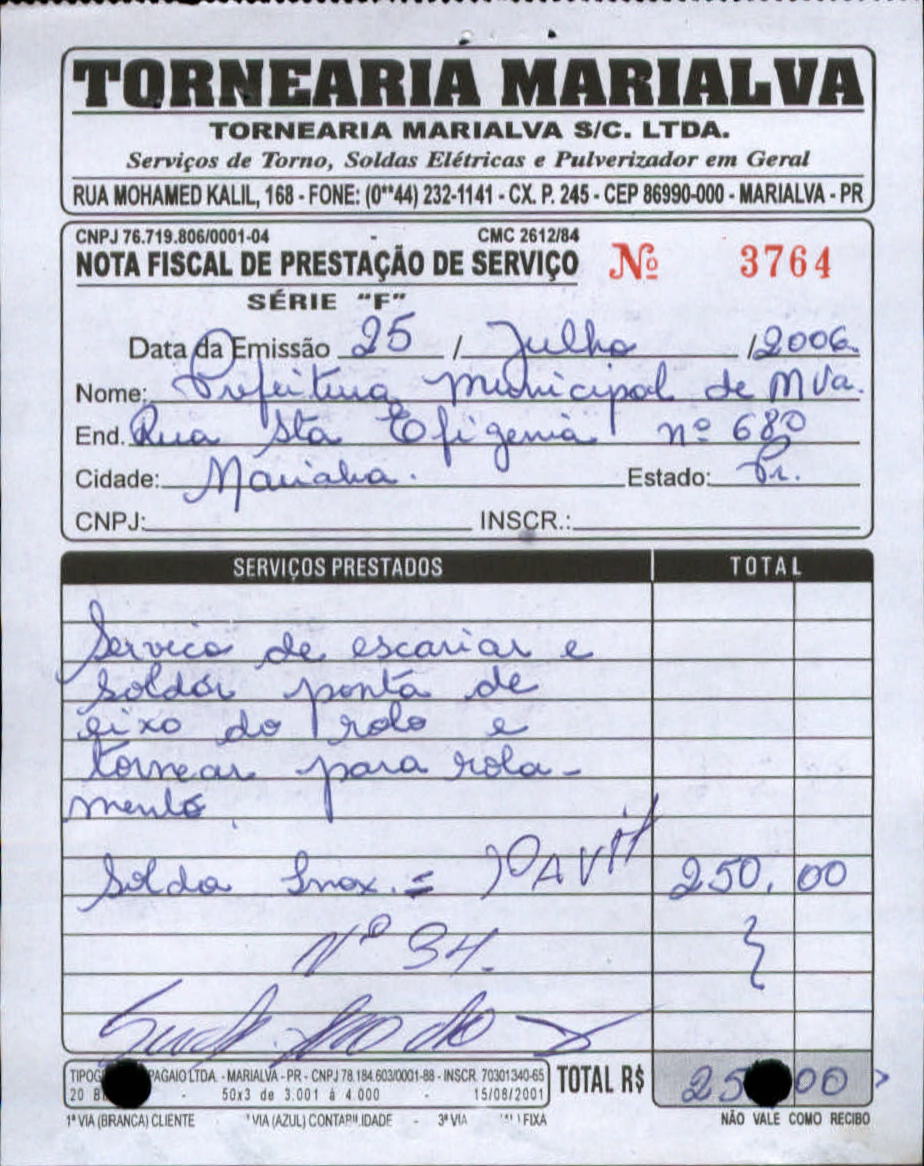 TORNEARIA MARIALVA
TORNEARIA MARIALVA S/C. LTDA.
Serviços de Torno, Soldas Elétricas e Pulverizador em Geral
RUA MOHAMED KALIL, 168 - FONE: (0**44) 232-1141 - CX. P. 245 - CEP 86990-000 - MARIALVA - PR
CNPJ 76.719.806/0001-04 - CMC 2612/84
NOTA FISCAL DE PRESTAÇÃO DE SERVIÇO Nº 3764
SÉRIE "F"
Data da Emissão 25 / Julho / 2006
Nome: Prefeitura Municipal de Mva.
End. Rua Sta Efigenia nº 680
Cidade: Marialva. Estado: Pr.
CNPJ: INSCR.:
SERVIÇOS PRESTADOS TOTAL
Servico de escariar e
soldar ponta de
eixo do rolo e
tornear para rola-
mento
Solda Inox. = 250,00
Nº 34.
TIPOG PAGAIO LTDA. - MARIALVA - PR - CNPJ 78.184.603/0001-88 - INSCR. 70301340-65
20 B - 50x3 de 3.001 á 4.000 - 15/08/2001
TOTAL R$ 25 00
1ª VIA (BRANCA) CLIENTE - VIA (AZUL) CONTABILIDADE - 3ª VIA FIXA
NÃO VALE COMO RECIBO